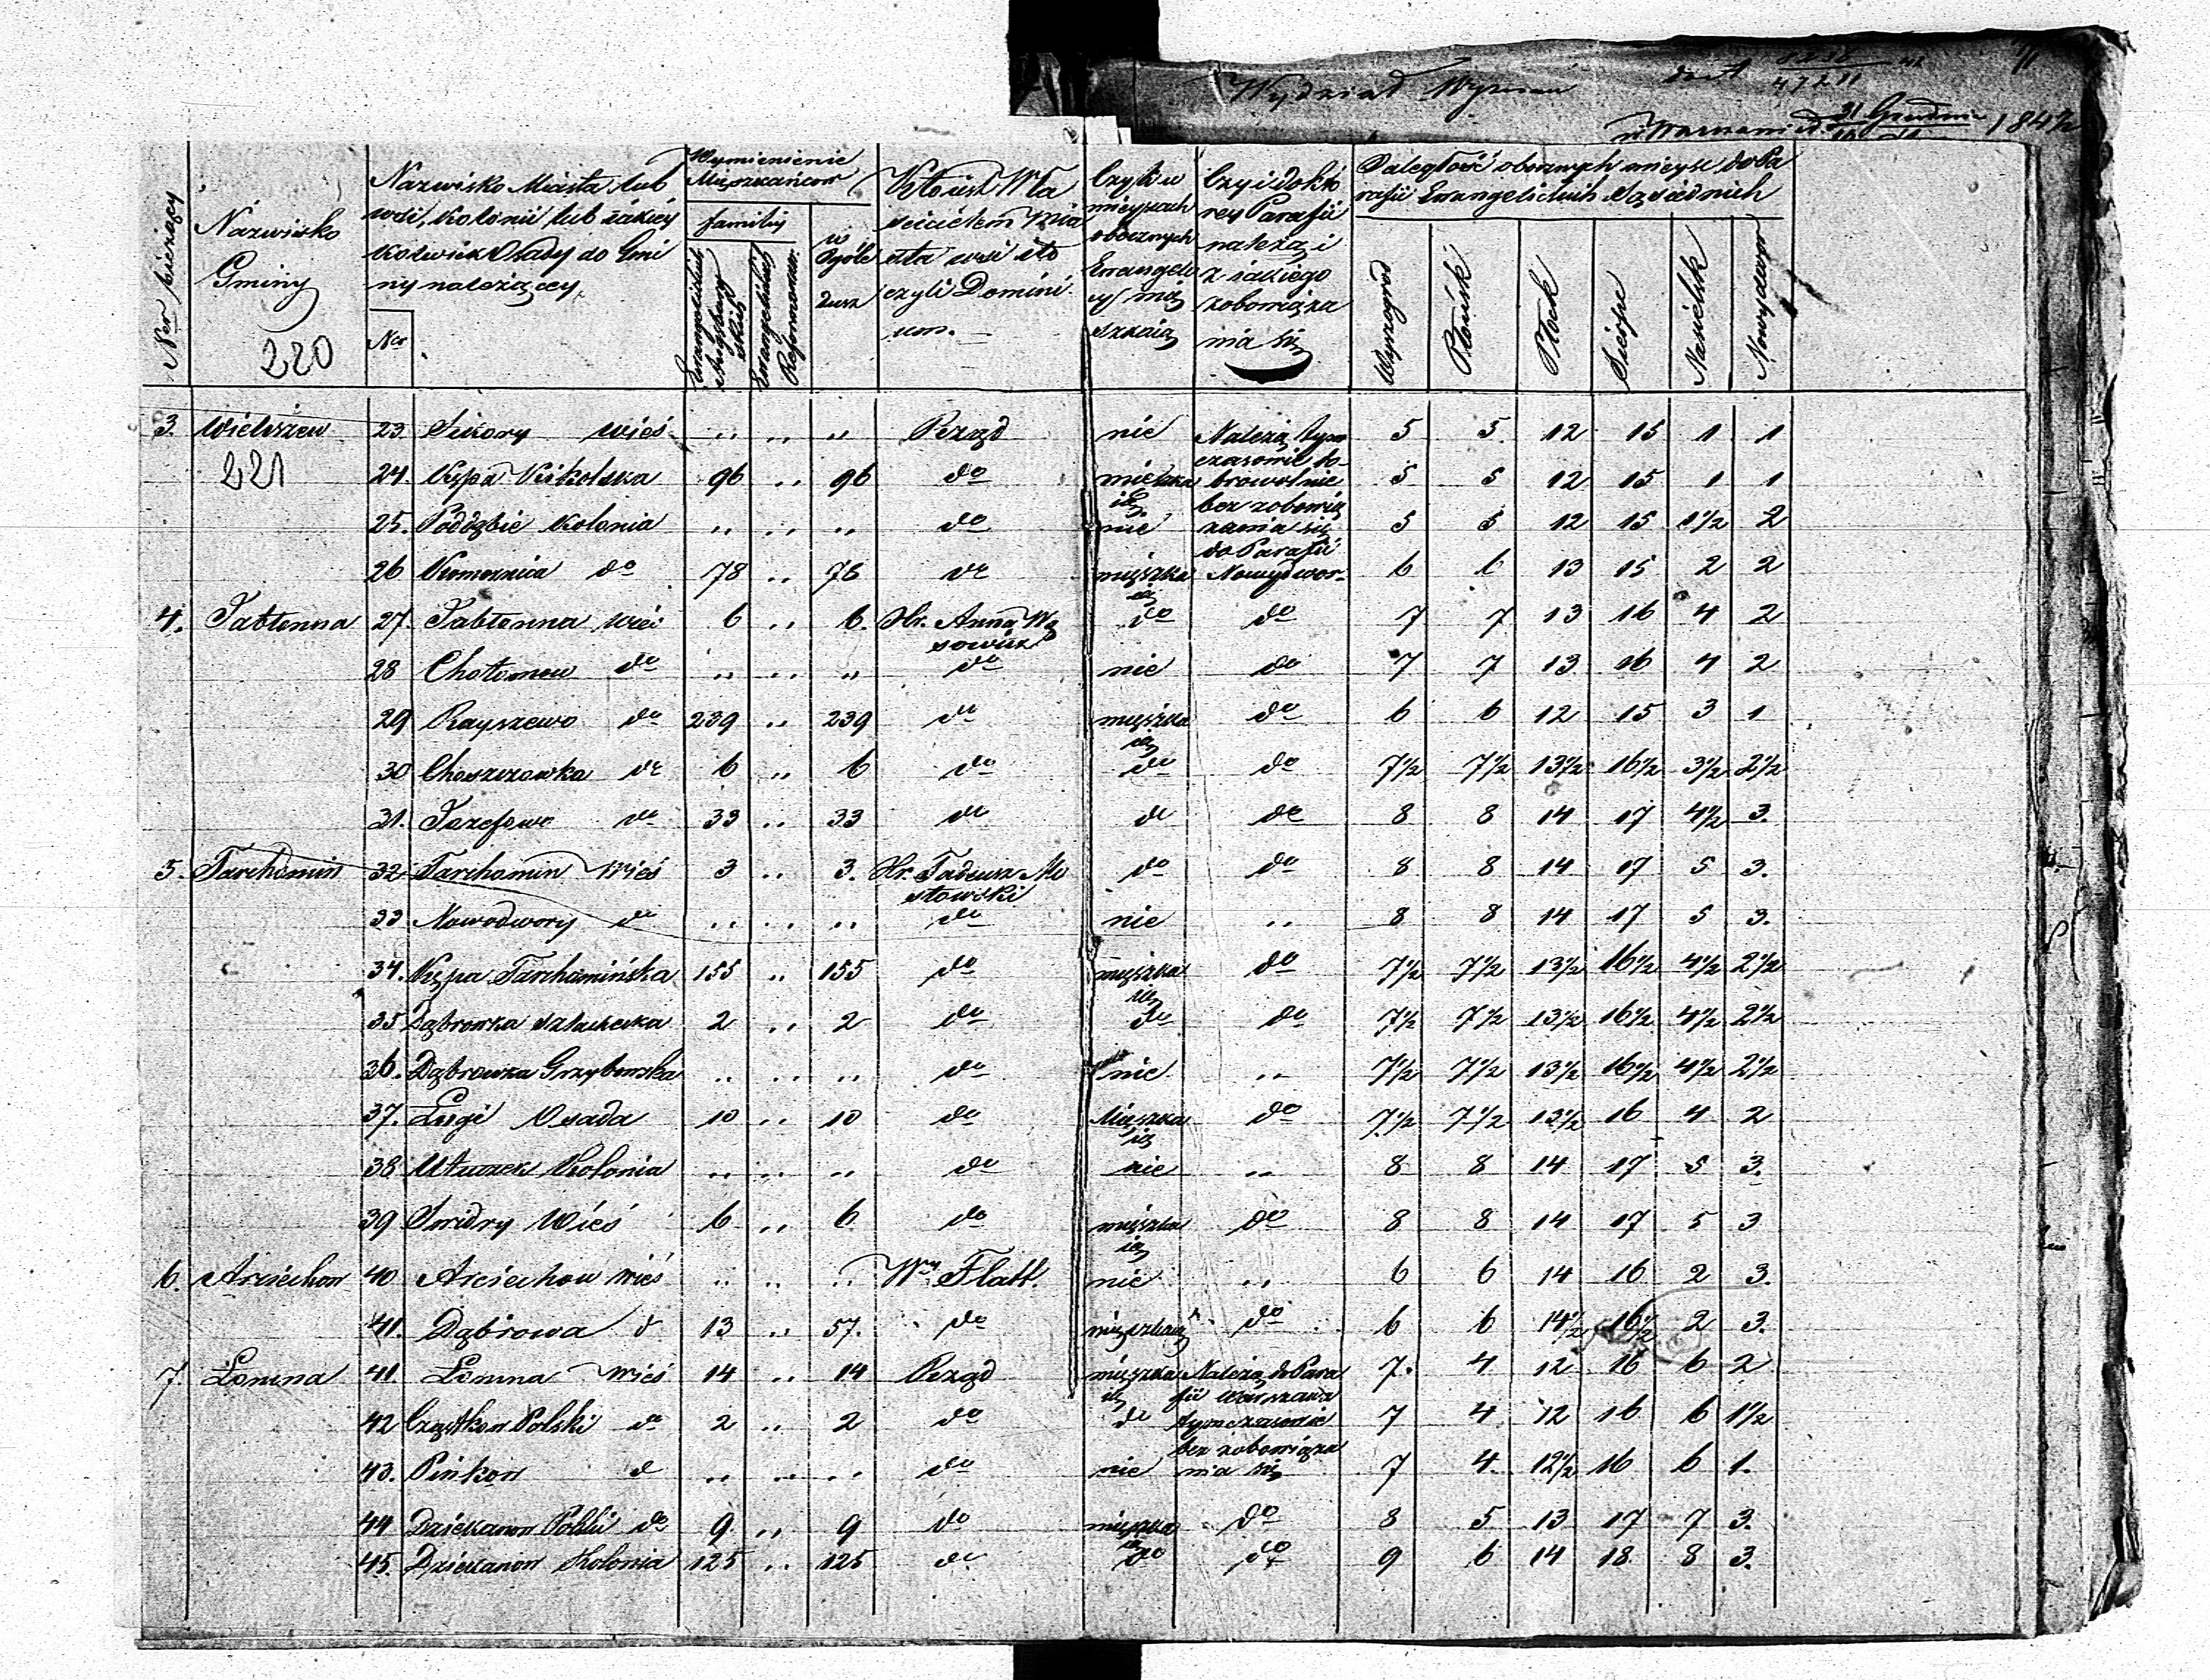 Wydział Wyznań
dnia 31 Grudnia 1842
Ner bieżący
Nazwisko Gminy
220
Nazwisko Miasta lub wsi, kolonii lub jakiéy kolwiek Osady do Gminy należącey
Nro
Wymienienie Mieszkańcow
familiy
Ewangelickich Augsburgskich
Ewangelickich Reformowan:
w Ogóle dusz
Kto iest Właścicielem Miasta wsi etc czyli Dominium.
Czyli w mieyscach obocznych Ewangelicy mieszkaią
Czy i do któréy Parafii należą i z iakiego zobowiązania się
Odległość obocznych mieysc do Parafii Ewangelickich Sąsiednich
Wyszogród
Płońsk
Płock
Sierpc
Nasielsk
Nowydwor
3. Wieliszew 23 Sikory wieś .. .. .. Rząd nie Należą tymczasowie dobrowolnie bez zobowiązania się do Parafii Nowydwor 5 5 12 15 1 1
221 24. Kępa Kikolska 96 .. 96 do mieszkaią 5 5 12 15 1 1
25. Poddębie Kolonia .. .. .. do nie 5 5 12 15 1½ 2
26 Komornica do 78 .. 78 do mieszkaią 6 6 13 15 2 2
4. Jabłonna 27. Jabłonna wieś 6 .. 6. Hr. Anna Wąsowicz do do 7 7 13 16 4 2
28 Chotomow do .. .. .. do nie do 7 7 13 16 4 2
29 Rayszewo do 239 .. 239 do mieszkaią do 6 6 12 15 3 1
30 Choszczowka do 6 .. 6 do do do 7½ 7½ 13½ 16½ 3½ 2½
31. Jozefowo do 33 .. 33 do do do 8 8 14 17 4½ 3.
5. Tarchomin 32 Tarchomin Wieś 3 .. 3. Hr. Tadeusz Mostowski do do 8 8 14 17 5 3.
33 Nowodwory do .. .. .. do nie .. 8 8 14 17 5 3.
34. Kępa Tarchomińska 155 .. 155 do mieszkaią do 7½ 7½ 13½ 16½ 4½ 2½
35 Dąbrowka szlachecka 2 .. 2 do do do 7½ 7½ 13½ 16½ 4½ 2½
36. Dąbrowka Grzybowska .. .. .. do nie .. 7½ 7½ 13½ 16½ 4½ 2½
37. Ługi Osada 10 .. 10 do Mieszkaią do 7½ 7½ 13½ 16 4 2
38 Kolonia .. .. .. do nie .. 8 8 14 17 5 3.
39 Swidry Wieś 6 .. 6 do mieszkaią do 8 8 14 17 5 3
6. Arciechow 40 Arciechow wieś .. .. .. Wny Flatt. nie .. 6 6 14 16 2 3.
41. Dąbrowa d 13 .. 57. do mieszkaią do 6 6 14½ 16½ 2 3.
7. Łomna 41. Łomna Wieś 14 .. 14 Rząd mieszkaią Należą do Parafii Warszawa tymczasowie bez zobowiązania się 7. 4 12 16 6 2
42 Cząstkow Polski do 2 .. 2 do do 7 4 12 16 6 1½
43. Pinkow d .. .. .. do nie 7 4 12½ 16 6 1.
44 Dziekanow Polski do 9 .. 9 do mieszkaią do 8 5 13 17 7 3.
45. Dziekanow Kolonia 125 .. 125 do do do 9 6 14 18 8 3.